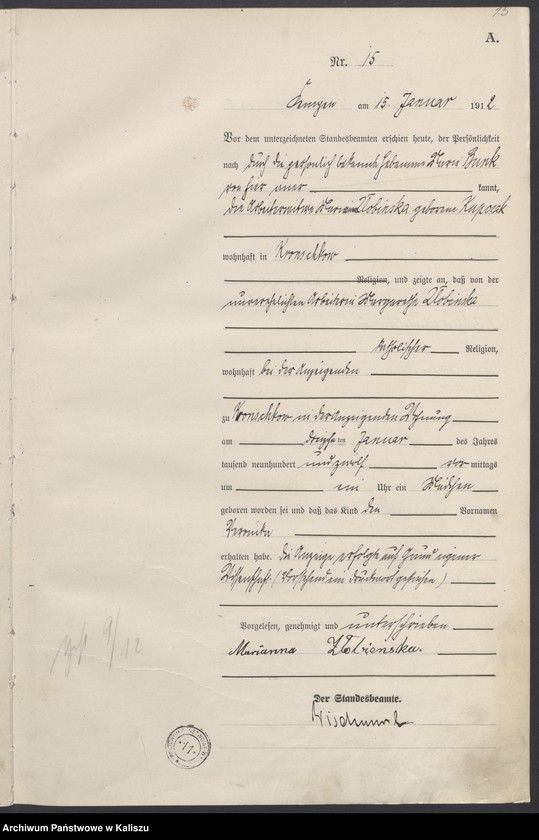 15
A.
Nr. 15
am 15. Januar 1912
Vor dem unterzeichneten Standesbeamten erschien heute, der Persönlichkeit
nach durch die persönlich bekannte Hebamme Marie
von hier kannt,
die Arbeiterwitwe geborene
wohnhaft in Kronschkow
Religion, und zeigte an, daß von der
unverehelichten Arbeiterin
katholischer Religion,
wohnhaft bei der Anzeigenden
zu Kronschkow in der Anzeigenden Wohnung
am ten Januar des Jahres
tausend neunhundert und zwölf vor mittags
um ein Uhr ein Mädchen
geboren worden sei und daß das Kind den Vornamen
Veronika
erhalten habe. Die Anzeige erfolgte auf Grund eigener
Wissenschaft. (Vorstehend ein Druckwort gestrichen)
Vorgelesen, genehmigt und unterschrieben
Marianna Złobienska.
Der Standesbeamte.
9/12
11
Archiwum Państwowe w Kaliszu